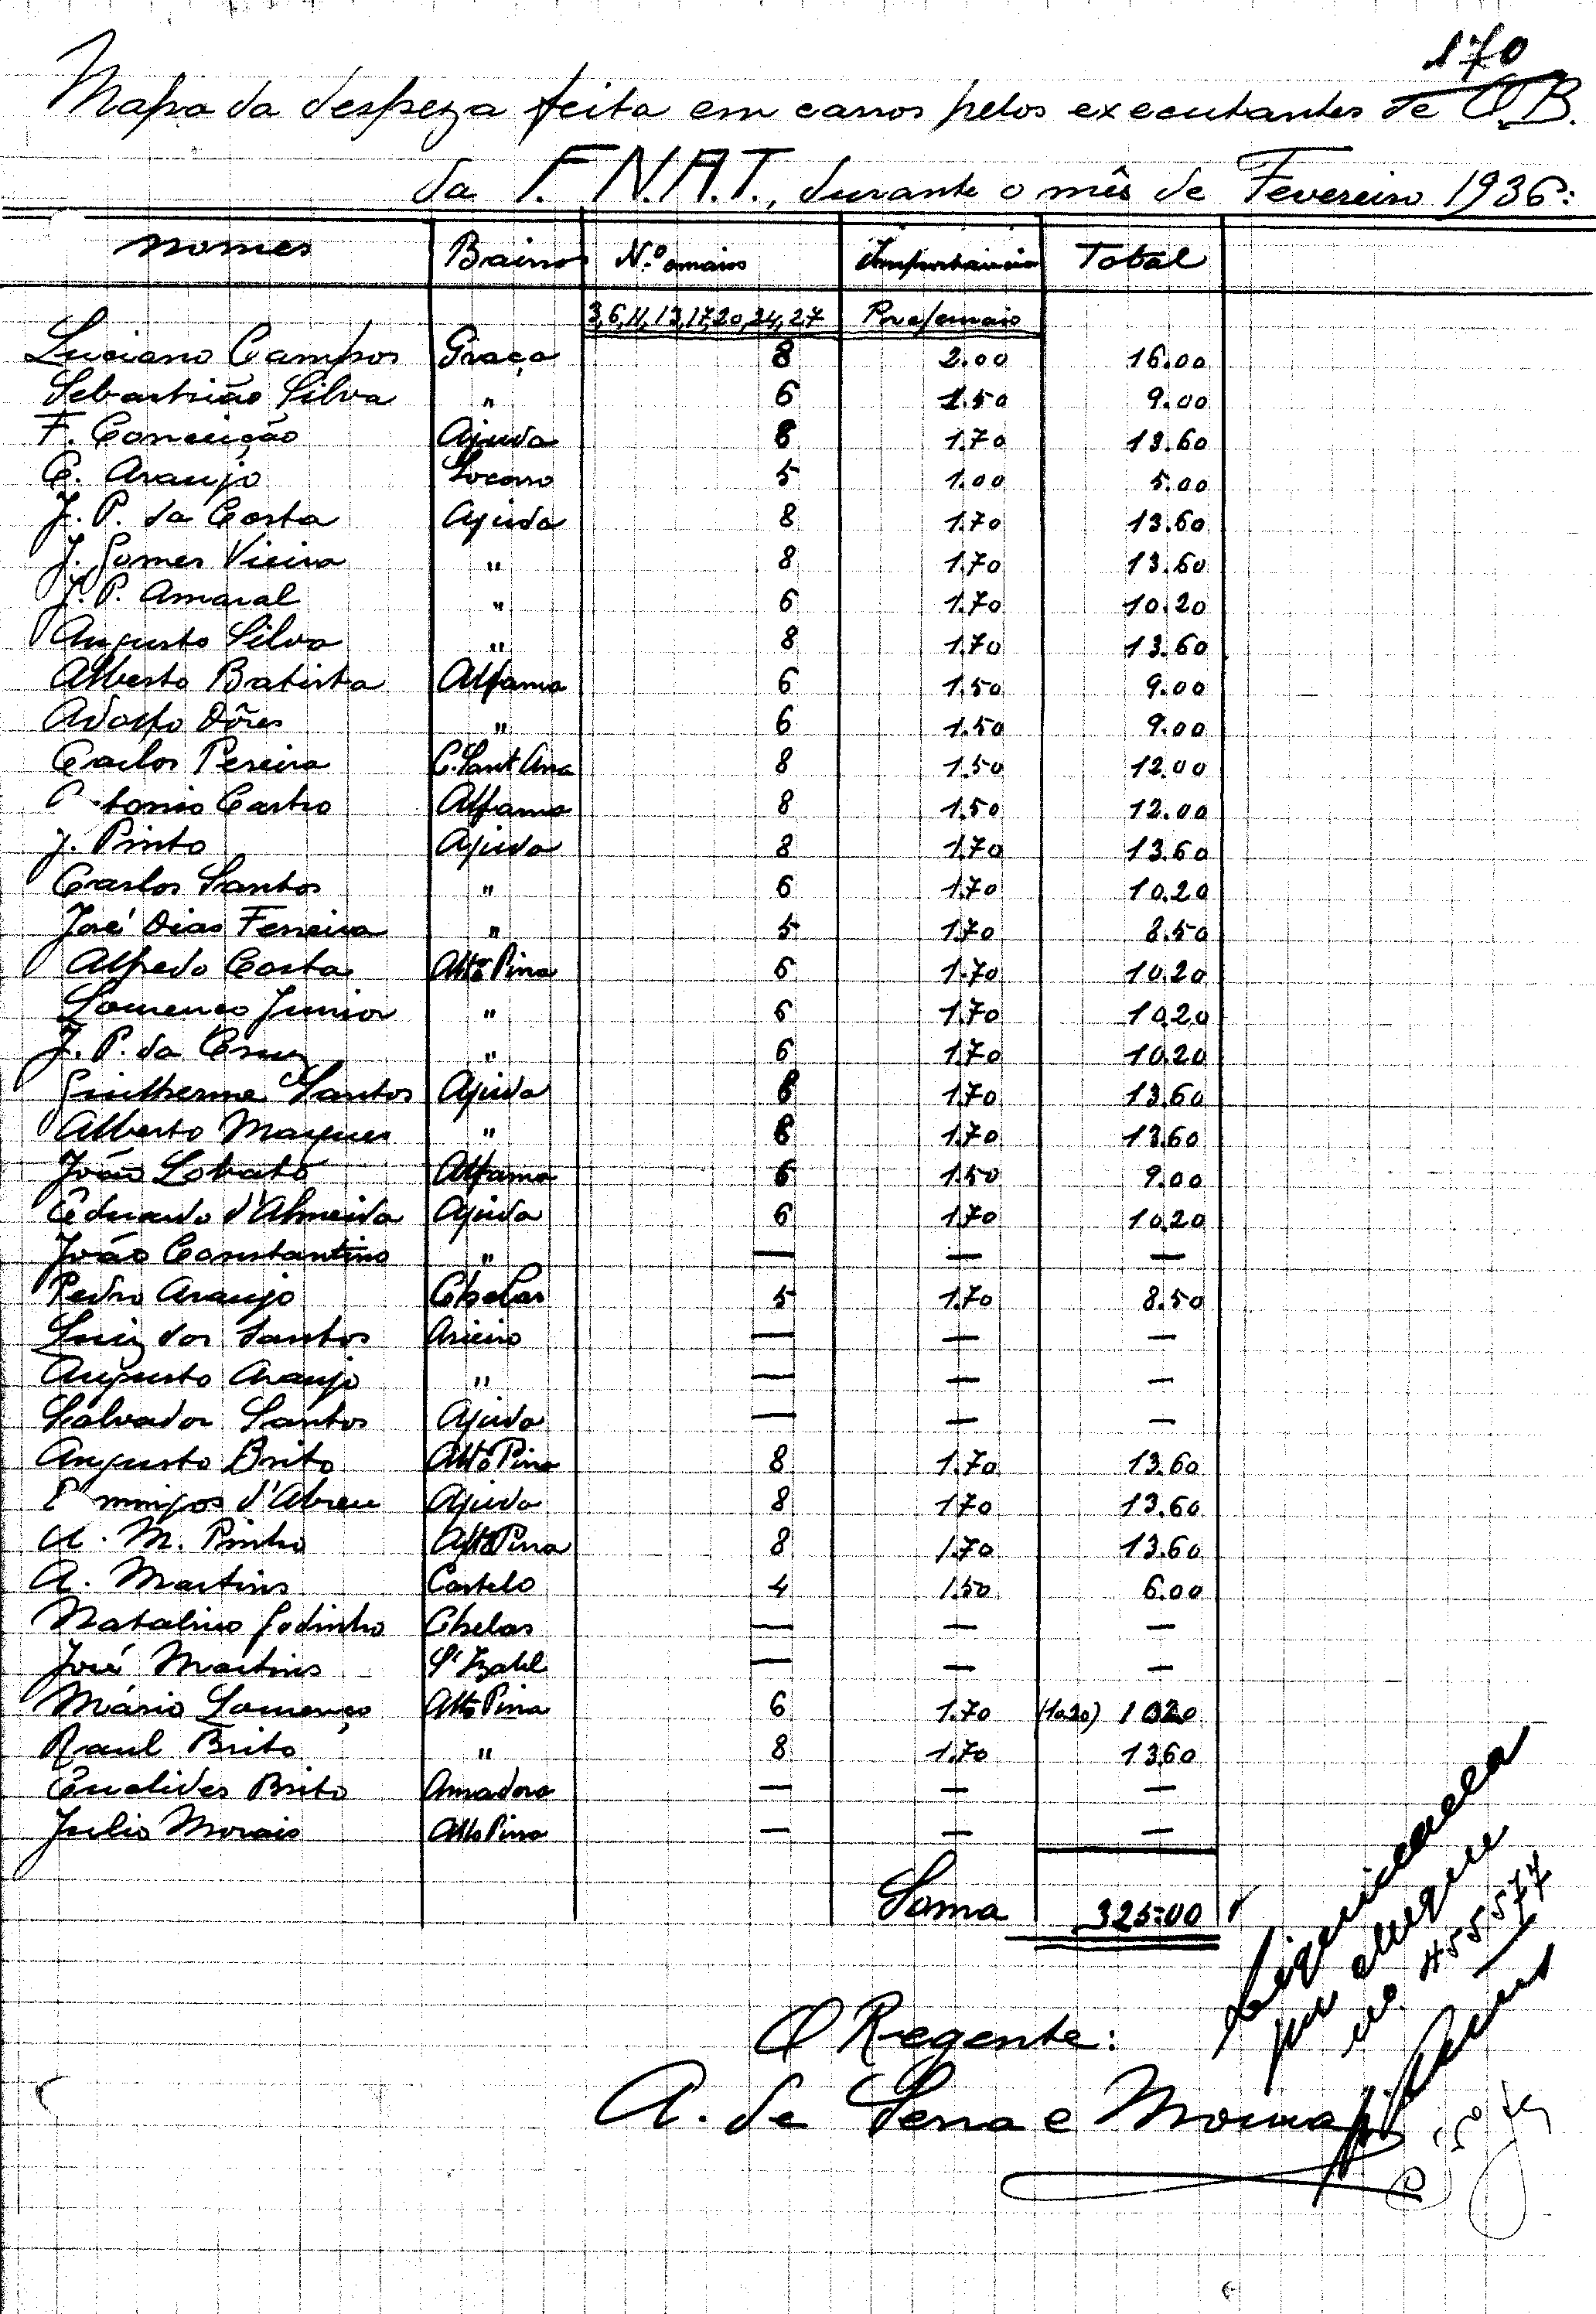 170
Mapa da despeza feita em carros pelos executantes de O.B.
da F.N.A.T., durante o mês de Fevereiro 1936:
Nomes Bairros N.º ensaios Importancia Total
3,6,11,13,17,20,24,27 Por ensaio
Luciano Campos Graça 8 2.00 16.00
Sebastião Silva " 6 1.50 9.00
F. Conceição Ajuda 8 1.70 13.60
C. Araujo Socorro 5 1.00 5.00
J. P. da Costa Ajuda 8 1.70 13.60
J. Gomes Vieira " 8 1.70 13.60
J. P. Amaral " 6 1.70 10.20
Augusto Silva " 8 1.70 13.60
Alberto Batista Alfama 6 1.50 9.00
Adolfo Dôres " 6 1.50 9.00
Carlos Pereira C. Sant'Ana 8 1.50 12.00
tonio Castro Alfama 8 1.50 12.00
J. Pinto Ajuda 8 1.70 13.60
Carlos Santos " 6 1.70 10.20
José Dias Ferreira " 5 1.70 8.50
Alfredo Costa Alto Pina 6 1.70 10.20
Lourenco Junior " 6 1.70 10.20
J. P. da Cruz " 6 1.70 10.20
Guilherme Santos Ajuda 8 1.70 13.60
Alberto Marques " 8 1.70 13.60
João Lobato Alfama 6 1.50 9.00
Eduardo d'Almeida Ajuda 6 1.70 10.20
João Constantino " — — —
Pedro Araujo Chelas 5 1.70 8.50
Luiz dos Santos Arieiro — — —
Augusto Araujo " — — —
Salvador Santos Ajuda — — —
Augusto Brito Alto Pina 8 1.70 13.60
mingos d'Abreu Ajuda 8 1.70 13.60
A. M. Pinho Alto Pina 8 1.70 13.60
A. Martins Castelo 4 1.50 6.00
Natalino Godinho Chelas — — —
José Martins S.ta Izabel — — —
Mário Lourenço Alto Pina 6 1.70 (10.20) 10.20
Raul Brito " 8 1.70 13.60
Euclides Brito Amadora — — —
Julio Morais Alto Pina — — —
Soma 325.00
O Regente:
A. de Sena e Moura
por cheque
no. 455577